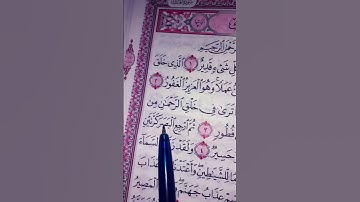 حْمَٰنِ الرَّحِيمِ
شَىْءٍ قَدِيرٌ ١ الَّذِى خَلَقَ
عَمَلًا وَهُوَ الْعَزِيزُ الْغَفُورُ ٢
تَرَىٰ فِى خَلْقِ الرَّحْمَٰنِ مِن
فُطُورٍ ٣ ثُمَّ ارْجِعِ الْبَصَرَ كَرَّتَيْنِ
حَسِيرٌ ٤ وَلَقَدْ زَيَّنَّا السَّمَاءَ
لِّلشَّيَاطِينِ وَأَعْتَدْنَا لَهُمْ عَذَابَ
عَذَابُ جَهَنَّمَ الْمَصِيرُ